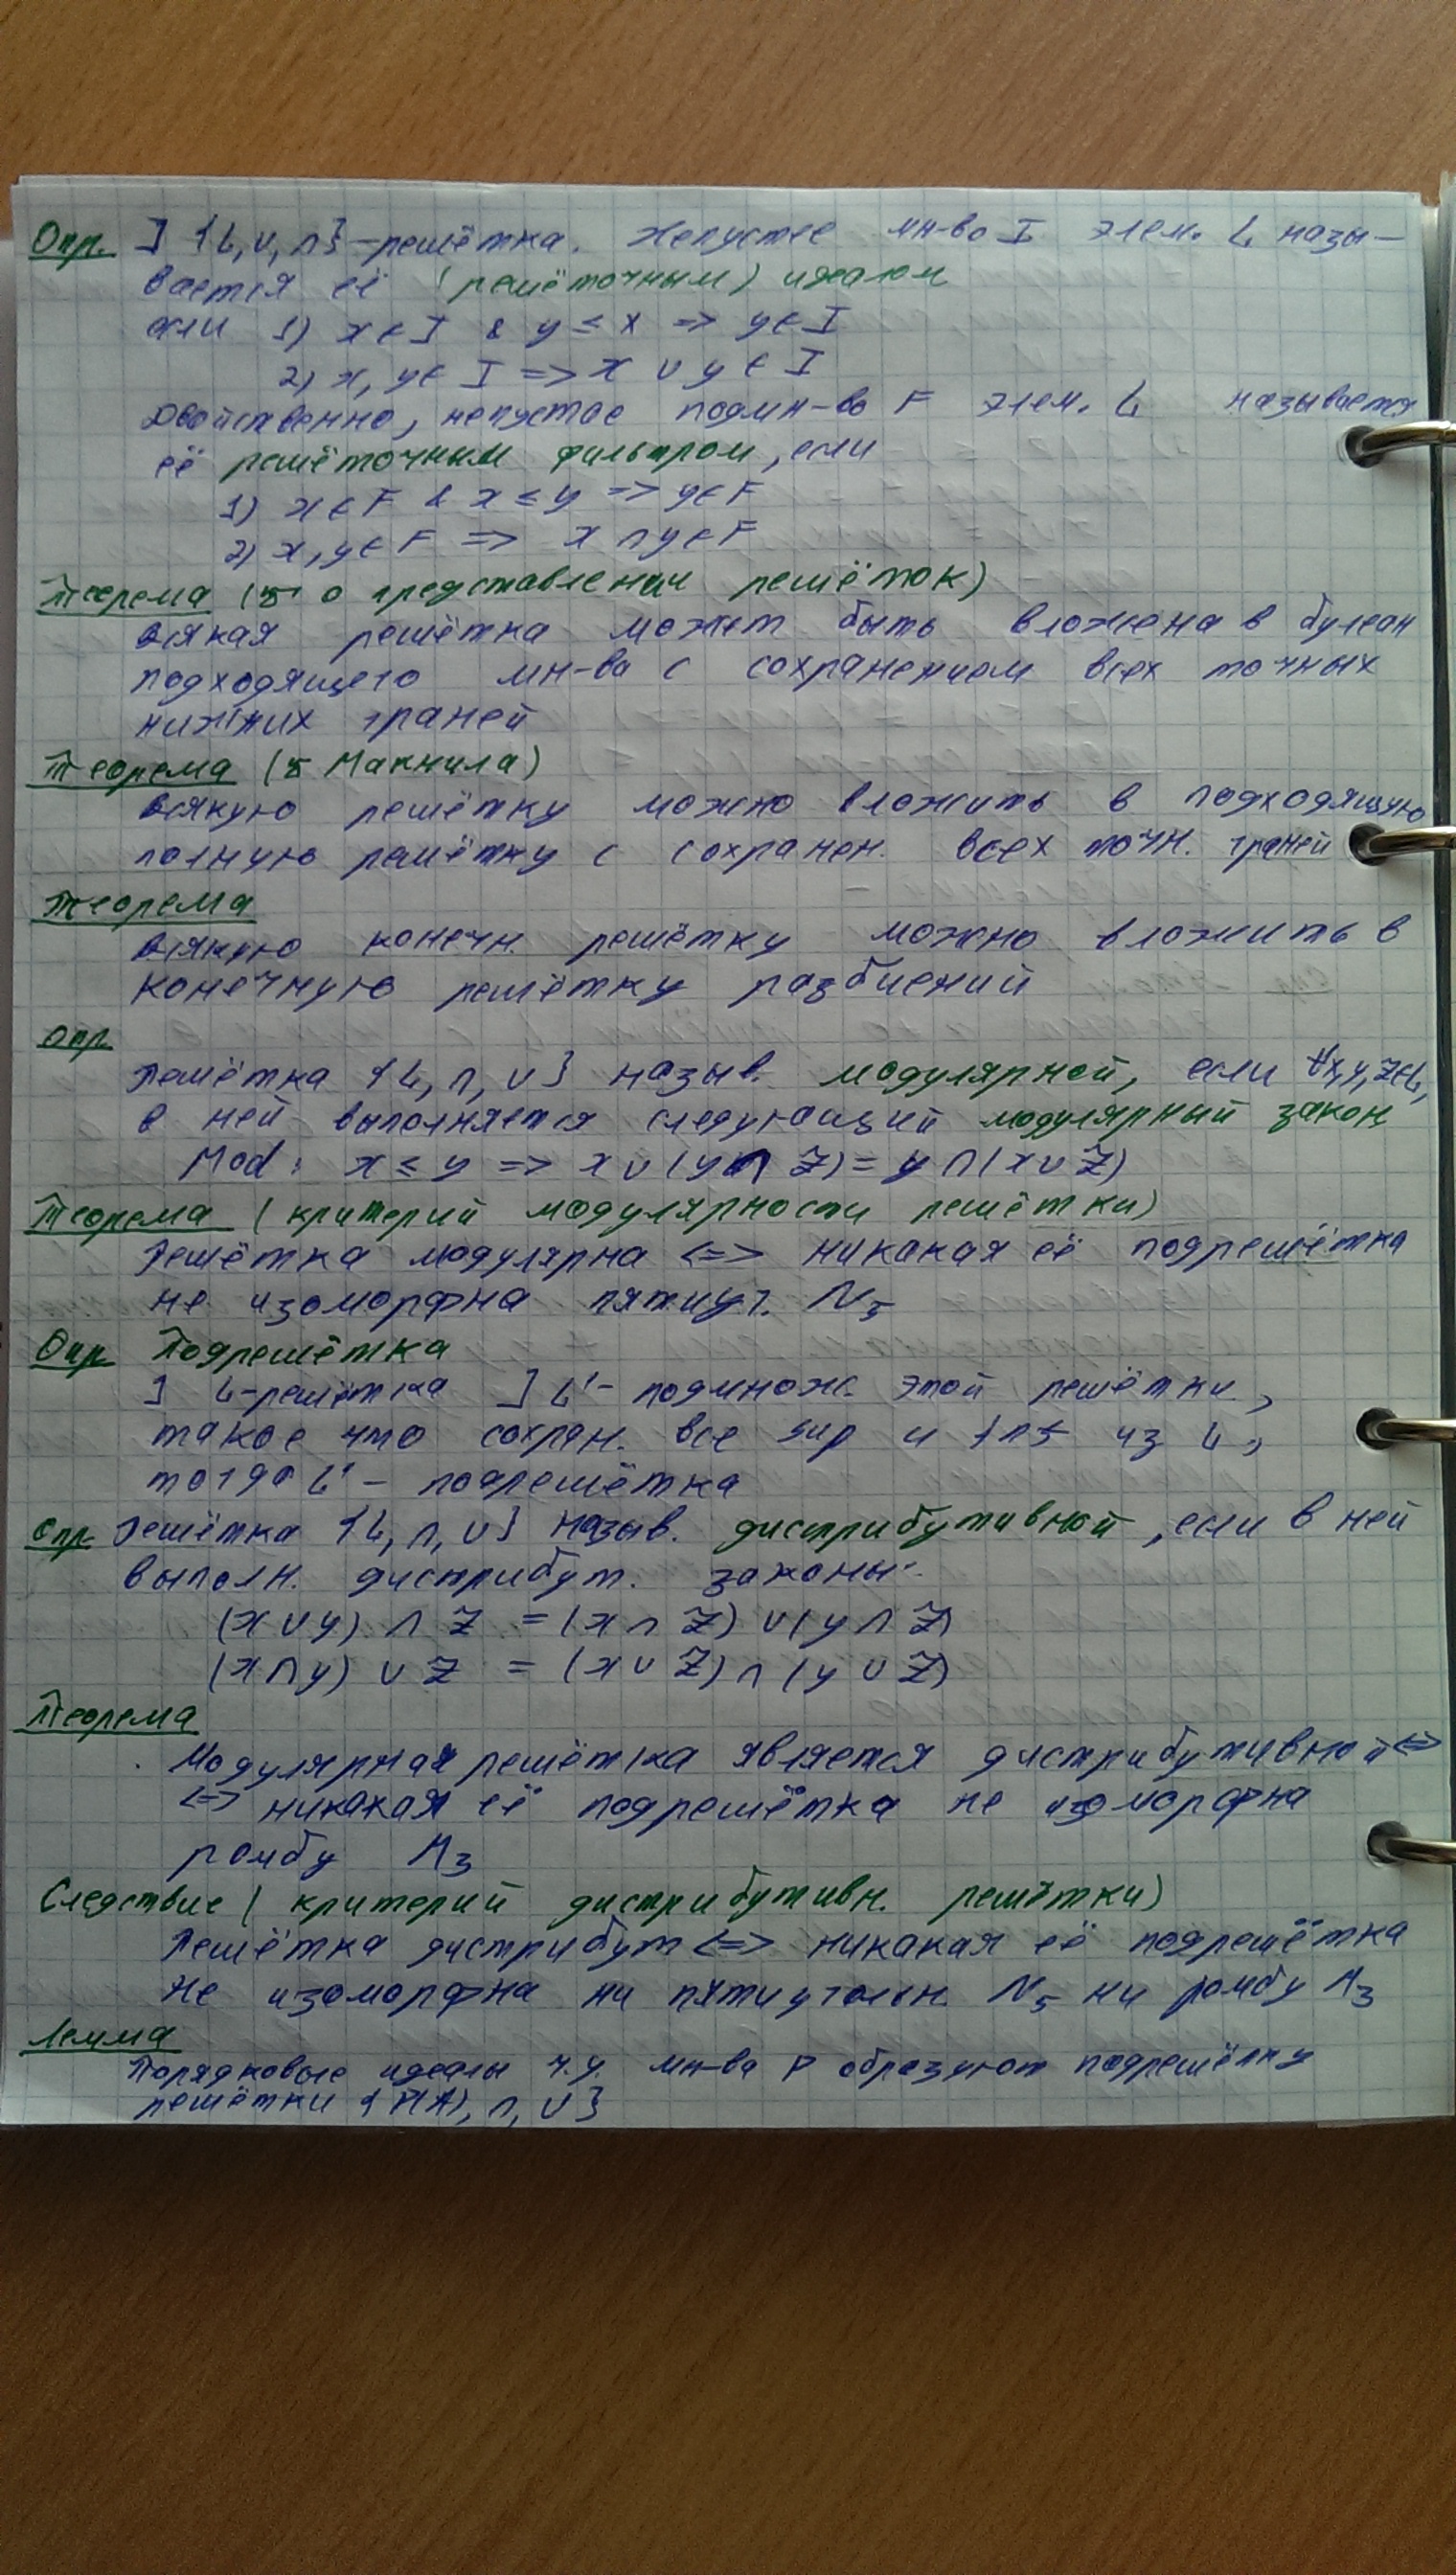 Опр. ] {L, ∪, ∩} - решётка. Непустое мн-во I элем. L назы-
вается её (решёточным) идеалом
если 1) x ∈ I & y ≤ x => y ∈ I
2) x, y ∈ I => x ∪ y ∈ I
Двойственно, непустое подмн-во F элем. L называется
её решёточным фильтром, если
1) x ∈ F & x ≤ y => y ∈ F
2) x, y ∈ F => x ∩ y ∈ F
Теорема ( о представлении решёток)
всякая решётка может быть вложена в булеан
подходящего мн-ва с сохранением всех точных
нижних граней
Теорема ( Макнила)
всякую решётку можно вложить в подходящую
полную решётку с сохранен. всех точн. граней
Теорема
всякую конечн. решётку можно вложить в
конечную решётку разбиений
опр
Решётка {L, ∩, ∪} назыв. модулярной, если ∀x, y, z ∈ L,
в ней выполняется следующий модулярный закон
Mod: x ≤ y => x ∪ (y ∩ z) = y ∩ (x ∪ z)
Теорема (критерий модулярности решётки)
Решётка модулярна <=> никакая её подрешётка
не изоморфна пятиуг. N5
Опр Подрешётка
] L-решётка ] L' - подмнож. этой решётки,
такое что сохран. все sup и inf из L,
тогда L' - подрешётка
опр Решётка {L, ∩, ∪} назыв. дистрибутивной, если в ней
выполн. дистрибут. законы:
(x ∪ y) ∩ z = (x ∩ z) ∪ (y ∩ z)
(x ∩ y) ∪ z = (x ∪ z) ∩ (y ∪ z)
Теорема
Модулярная решётка является дистрибутивной <=>
<=> никакая её подрешётка не изоморфна
ромбу M3
Следствие (критерий дистрибутивн. решётки)
Решётка дистрибут <=> никакая её подрешётка
не изоморфна ни пятиугольн. N5 ни ромбу M3
Лемма
Порядковые идеалы ч.у. мн-ва P образуют подрешётку
решётки {P(A), ∩, ∪}